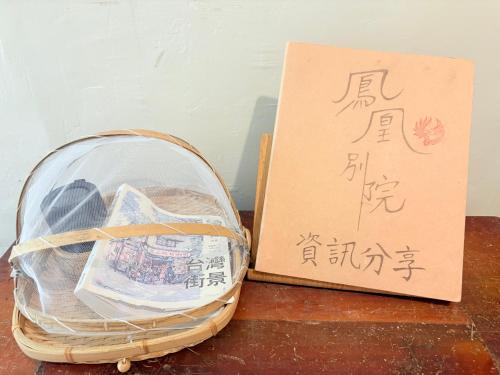 鳳凰別院
資訊分享
台灣
街景